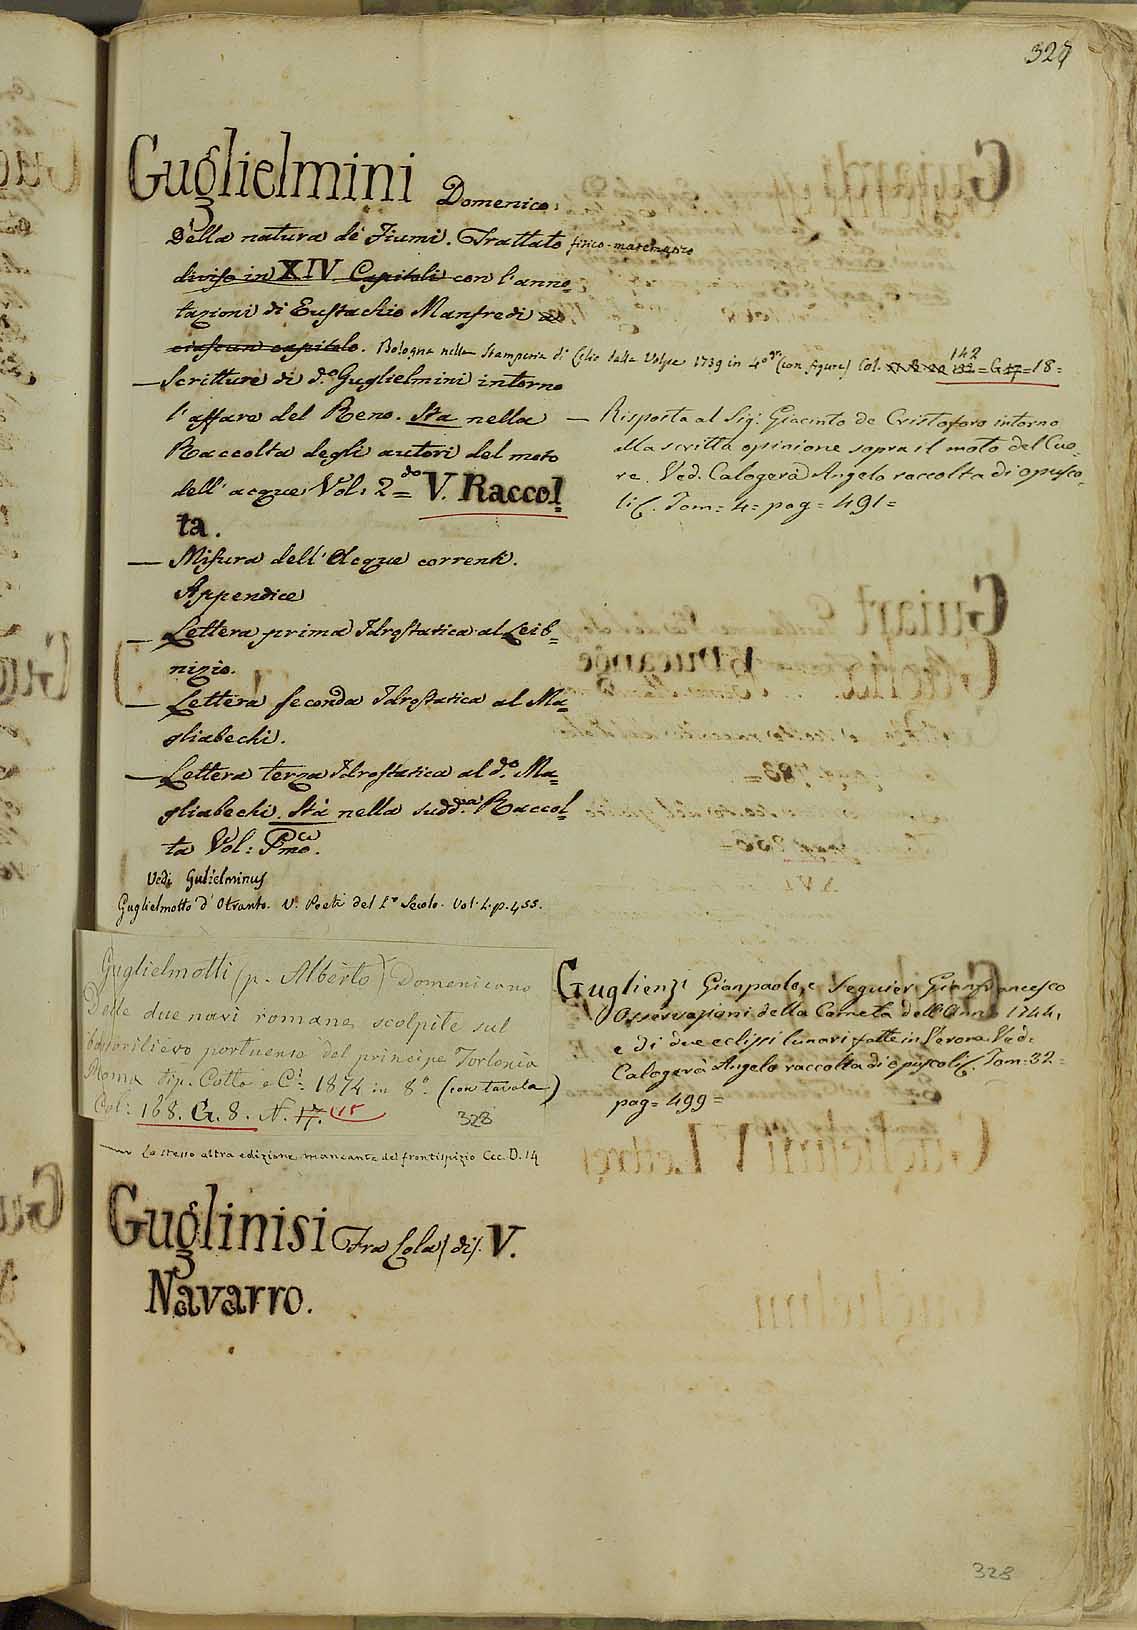 328
Guglielmini Domenico.
Della natura de' Fiumi. Trattato fisico-matemqtico
diviso in XIV. Capitoli con l'anno=
tazioni di Eustachio Manfredi ad
ciascun capitolo. Bologna nella Stamperia di Lelio dalla Volpe 1739 in 4° (con figure) Col. 142 = G. 17 = 18 =
— Scritture di d.° Guglielmini intorno
l'affare del Reno. Sta nella
Raccolta degli autori del moto
dell'acque Vol: 2do = V. Raccol=
ta.
— Misura dell'Acque correnti.
Appendice
— Lettera prima Idrostatica al Leib=
nizio.
— Lettera seconda Idrostatica al Ma=
gliabechi.
— Lettera terza Idrostatica al d.° Ma=
gliabechi. Stà nella sudd.a Raccol=
ta Vol: Pmo.
Vedi Gulielminus
Guglielmotto d'Otranto. V. Poeti del 1° Secolo. Vol. 1. p. 455.
Guglielmotti (p. Alberto) Domenicano
Delle due navi romane scolpite sul
bassorilievo portuense del principe Torlonia
Roma tip. Cotta e C.i 1874 in 8.° (con tavola)
Col: 168. G. 8. N. 17. 115
328
Lo stesso altra edizione mancante del frontispizio Cec. D. 14
Guglinisi Fra Cola (di). V.
Navarro.
— Risposta al Sig. Giacinto de Cristoforo intorno
alla scritta opinione sopra il moto del Cuo=
re. Ved. Calogerà Angelo raccolta di opusco=
li &c. Tom= 4= pag= 491=
Guglienzi Gianpaolo, e Seguier Gianfrancesco
Osservazioni della Cometa dell'Anno 1744,
e di due eclissi lunari fatte in Verona. Ved.
Calogerà Angelo raccolta di opuscoli &c. Tom= 32=
pag= 499=
328